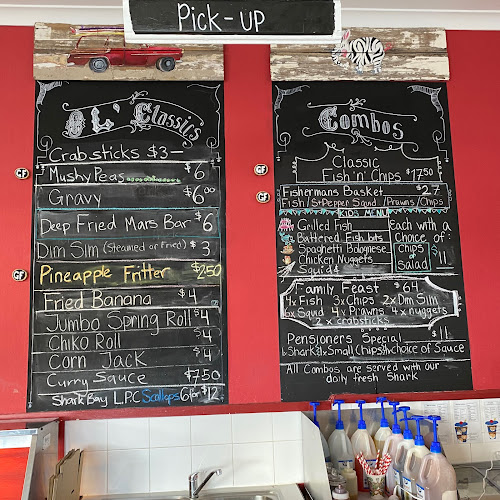 Pick-up
OL' Classics
Crabsticks $3-
GF
Mushy Peas $6
Gravy $6.00
Deep Fried Mars Bar $6
Dim Sim (Steamed or Fried) $3
GF
Pineapple Fritter $2.50
Fried Banana $4
Jumbo Spring Roll $4
Chiko Roll $4
Corn Jack $4
Curry Sauce $7.50
Shark Bay L.P.C Scallops 6 for $12
Combos
GF
Classic
Fish 'n' Chips $17.50
GF
Fishermans Basket $27
Fish/St Pepper Squid/Prawns/Chips
KIDS MENU
Grilled Fish
Battered Fish bits
Spaghetti Bolognese
Chicken Nuggets
Squid
Each with a
choice of:
Chips
or
Salad
$11
Family Feast $64
4x Fish 3x Chips 2x Dm Sim
6x Squid 4x Prawns 4x nuggets
2x crabsticks
Pensioners Special $11
1x Shark 1x Small Chips with choice of Sauce
All Combos are served with our
daily fresh Shark